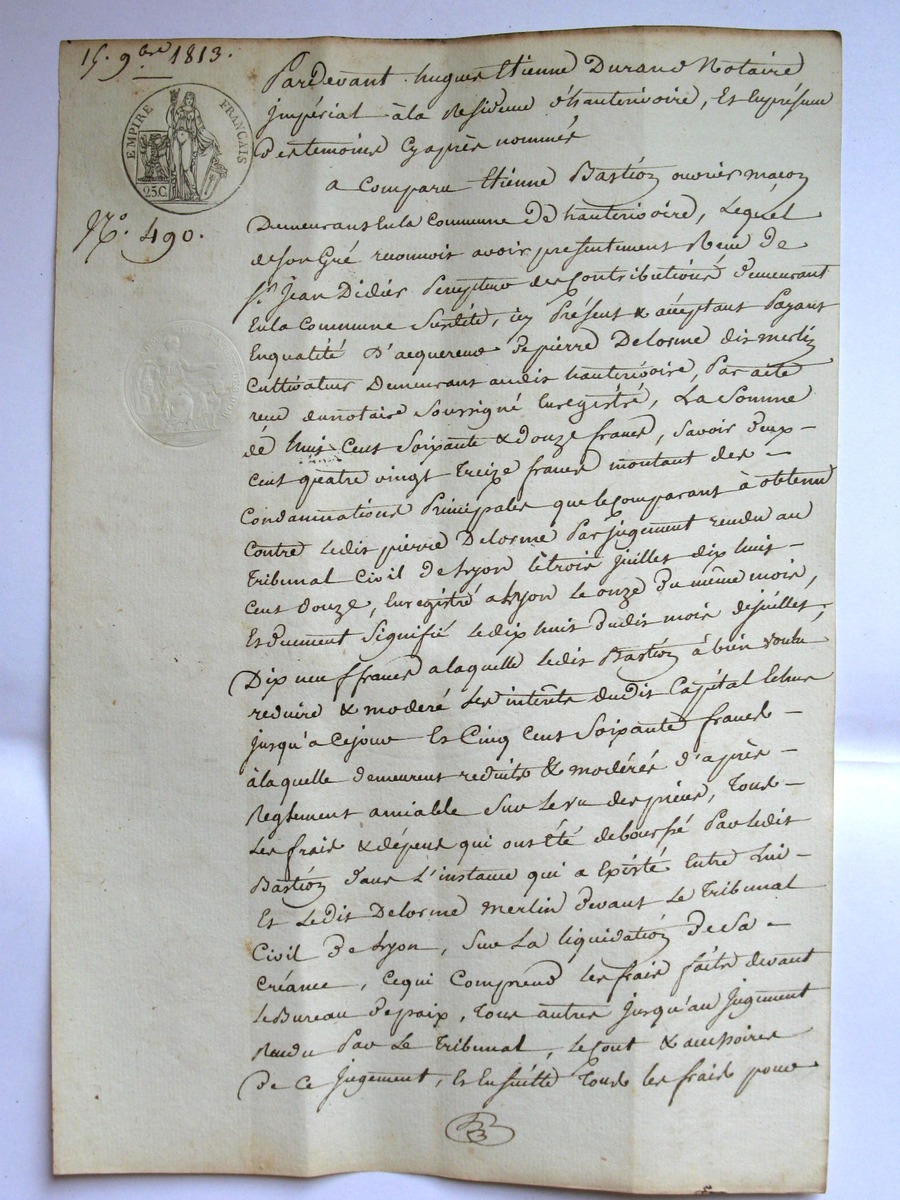 15. 9bre 1813.
EMPIRE FRANÇAIS
25 C.
N.o 490.
Pardevant hugues Etienne Durand Notaire
impérial à la Residence d'hauterivoire, Et En présence
des temoins Cy après nommés
a Comparu Etienne Bastion ouvrier maçon
Demeurant En la Commune De hauterivoire, Lequel
de son Gré reconnoit avoir presentement Reçu De
Sr. Jean Didier Percepteur des Contributions demeurant
En la Commune Susdite, icy Présent & acceptant Payant
En qualité D'acquereur de pierre Delorme dit merlin
Cultivateur Demeurant audit hauterivoire, Par acte
reçu du notaire Soussigné Enregistré, La Somme
de huit Cent Soixante & douze francs, Savoir deux
Cent quatre vingt treize francs montant des
Condamnations Principales que le Comparant à obtenu
Contre Ledit pierre Delorme Par jugement rendu au
Tribunal Civil de Lyon le trois juillet dix huit
Cent douze, Enregistré a Lyon le onze du même mois,
Et duement Signifié le dix huit dudit mois de juillet.
Dix neuf francs a laquelle ledit Bastion à bien voulu
reduire & modéré Les intérêts dudit Capital Echus
jusqu'a Ce jour Et Cinq Cent Soixante francs
à laquelle demeurent reduits & modérés d'après
Reglement amiable Sur le vu des pièces, Tous
Les frais & dépens qui ont Eté deboursé Par ledit
Bastion dans L'instance qui a Existé Entre Lui
Et Ledit Delorme Merlin devant Le Tribunal
Civil de Lyon, Sur La liquidation de Sa
Créance, Ce qui Comprend les frais faits devant
le Bureau de paix, Tous autres jusqu'au Jugement
Rendu Par Le Tribunal, le Cout & accessoires
De Ce Jugement, Et Ensuitte Tous les frais pour